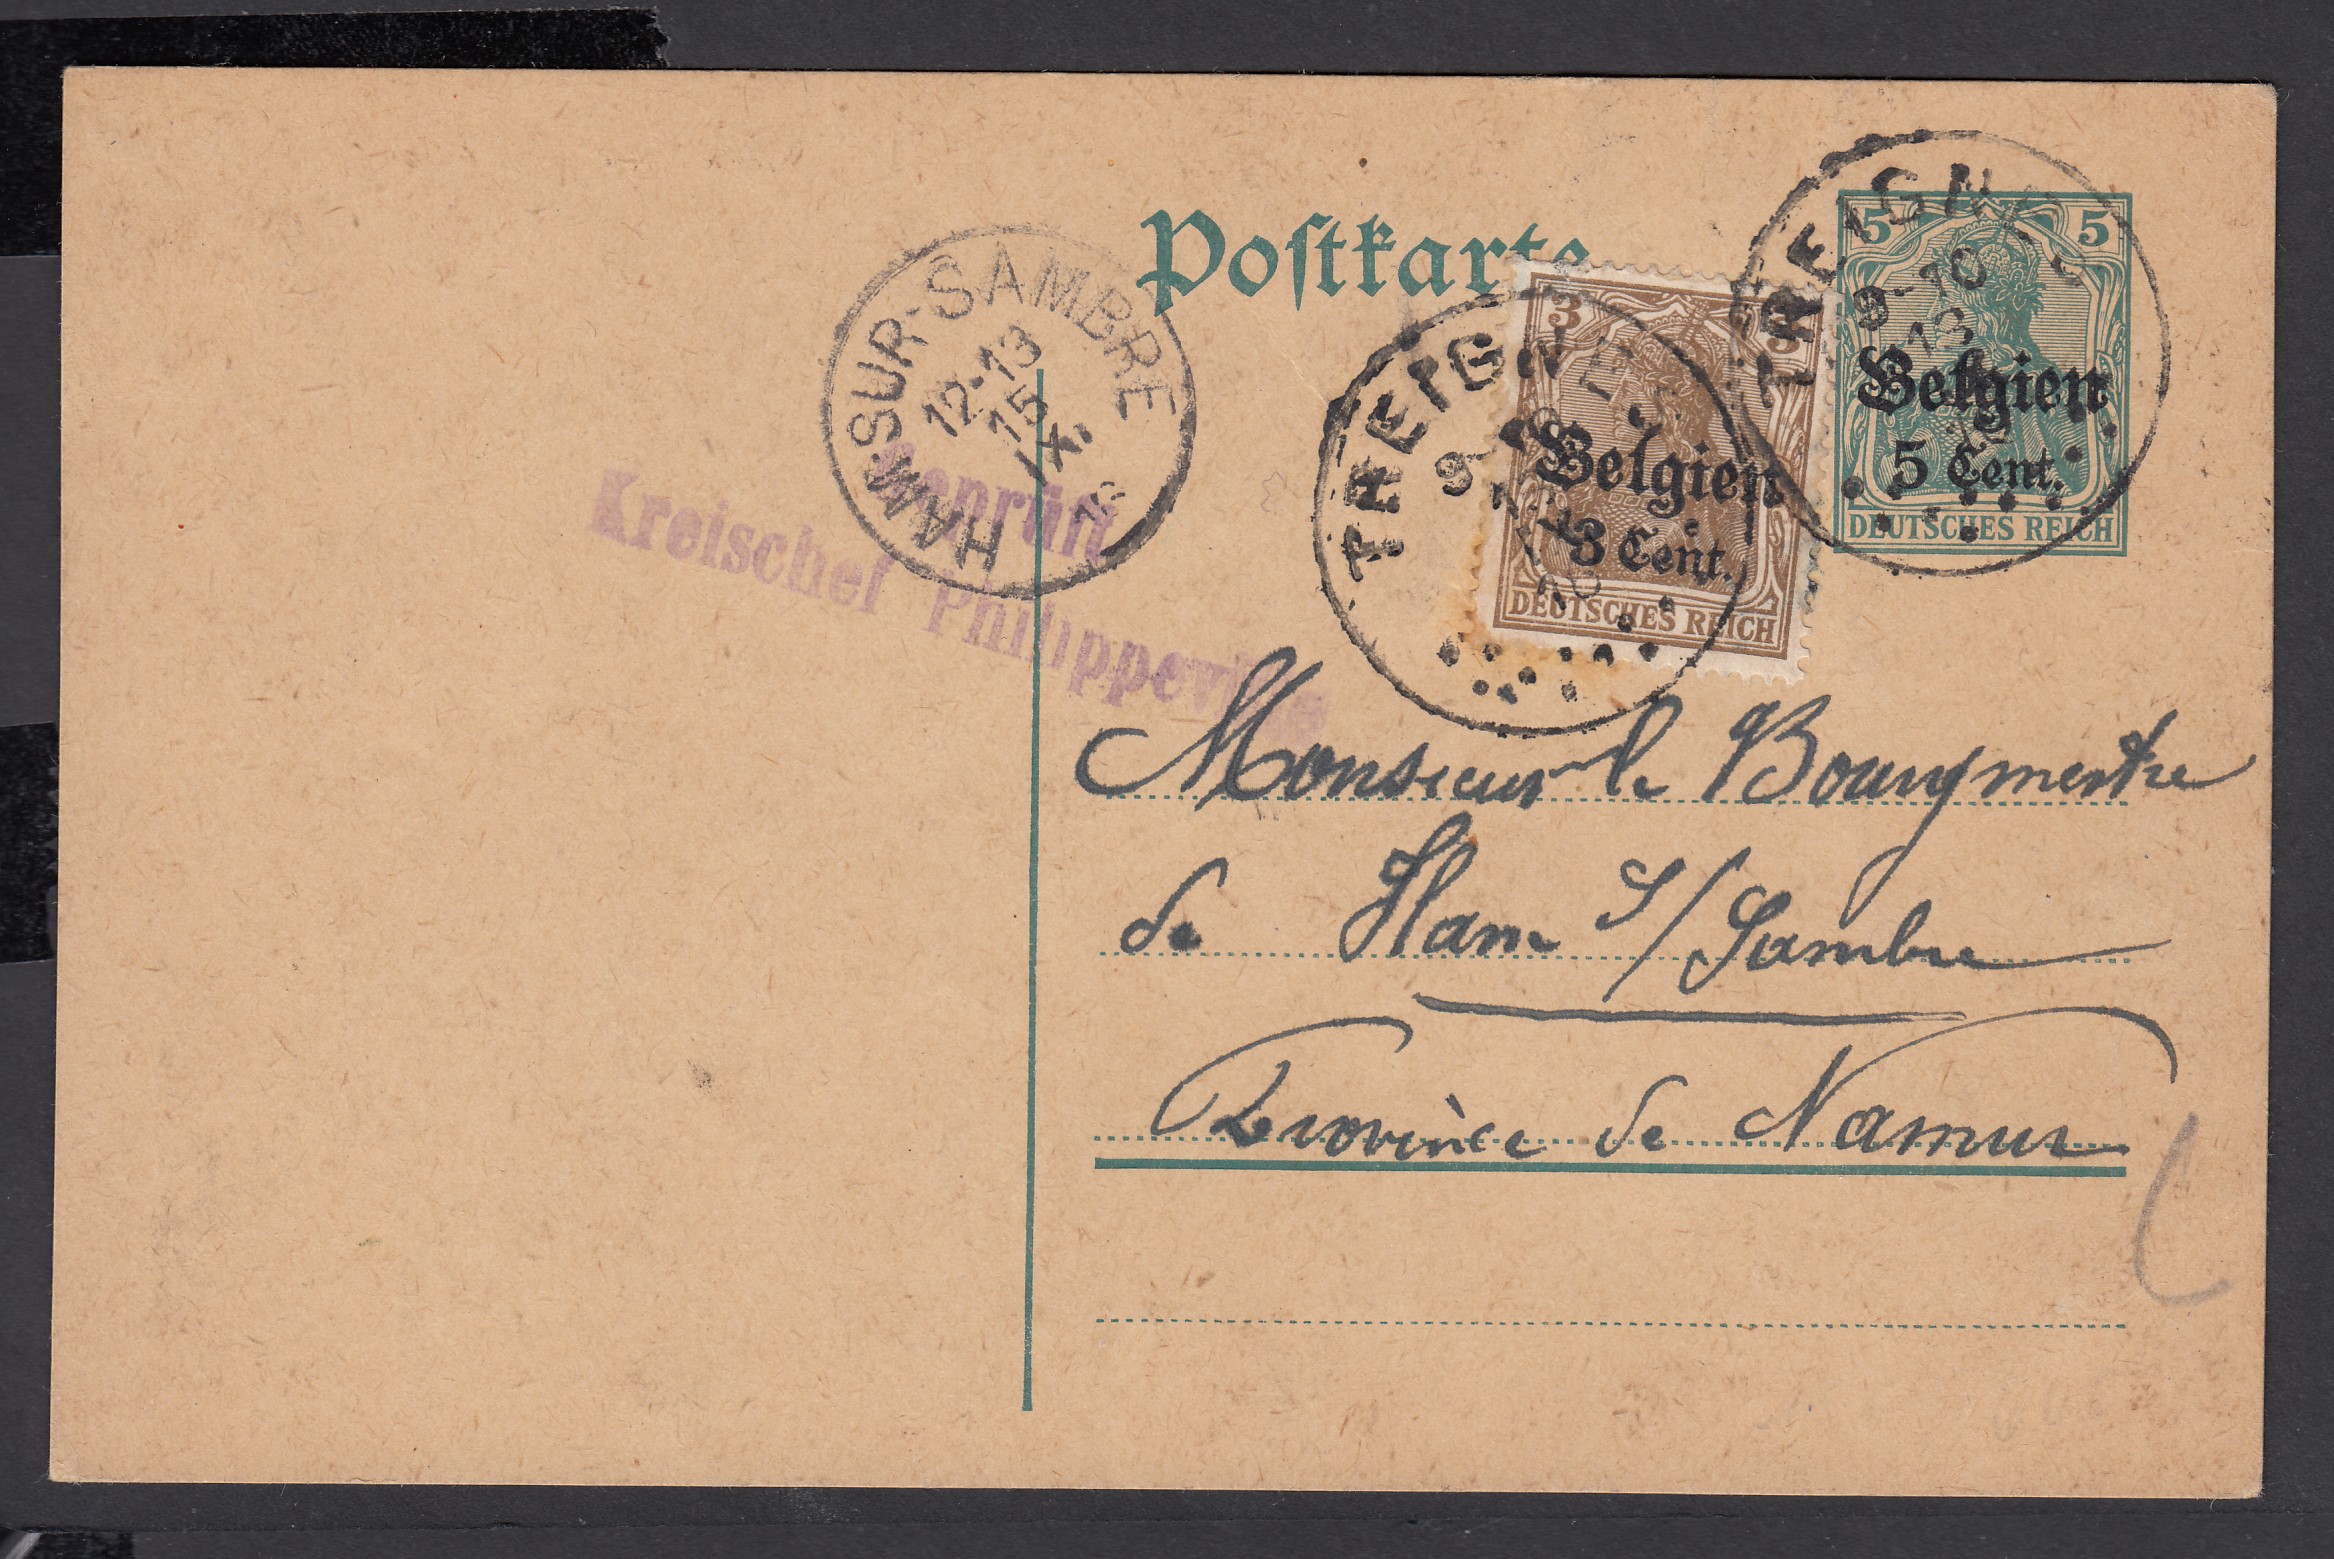 Postkarte
HAM-SUR-SAMBRE
12-13
15
IX
Geprüft
Kreischef Philippeville
TREIGNES
9-10
3
Belgien
3 Cent.
DEUTSCHES REICH
TREIGNES
9-10
13
5 5
Belgien
5 Cent.
DEUTSCHES REICH
Monsieur le Bourgmestre
de Ham S/Sambre
Province de Namur